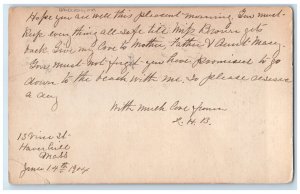 Hope you are well this pleasant morning. You must
keep everything all safe till Miss Brown gets
back. Give my love to Mother, Father & Aunt Mary.
You must not forget you have promised to go
down to the beach with me. So please reserve
a day
With much love from
L. H. B.
13 Vine St.
Haverhill
Mass
June 14th 1904